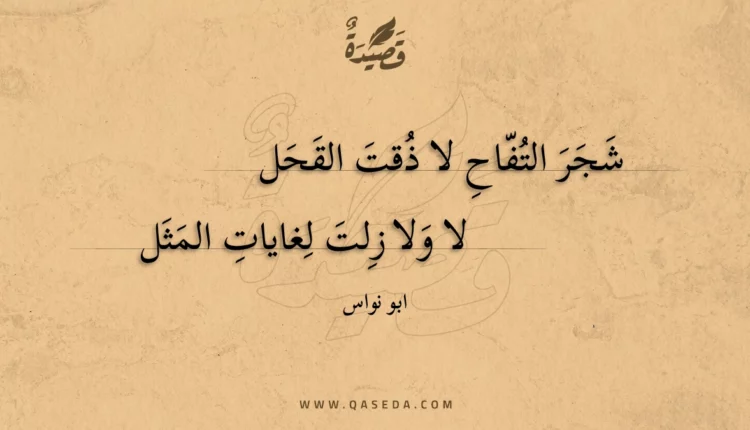 قَصِيدَةٌ
شَجَرَ التُفّاحِ لا ذُقتَ القَحَل
لا وَلا زِلتَ لِغاياتِ المَثَل
ابو نواس
WWW.QASEDA.COM